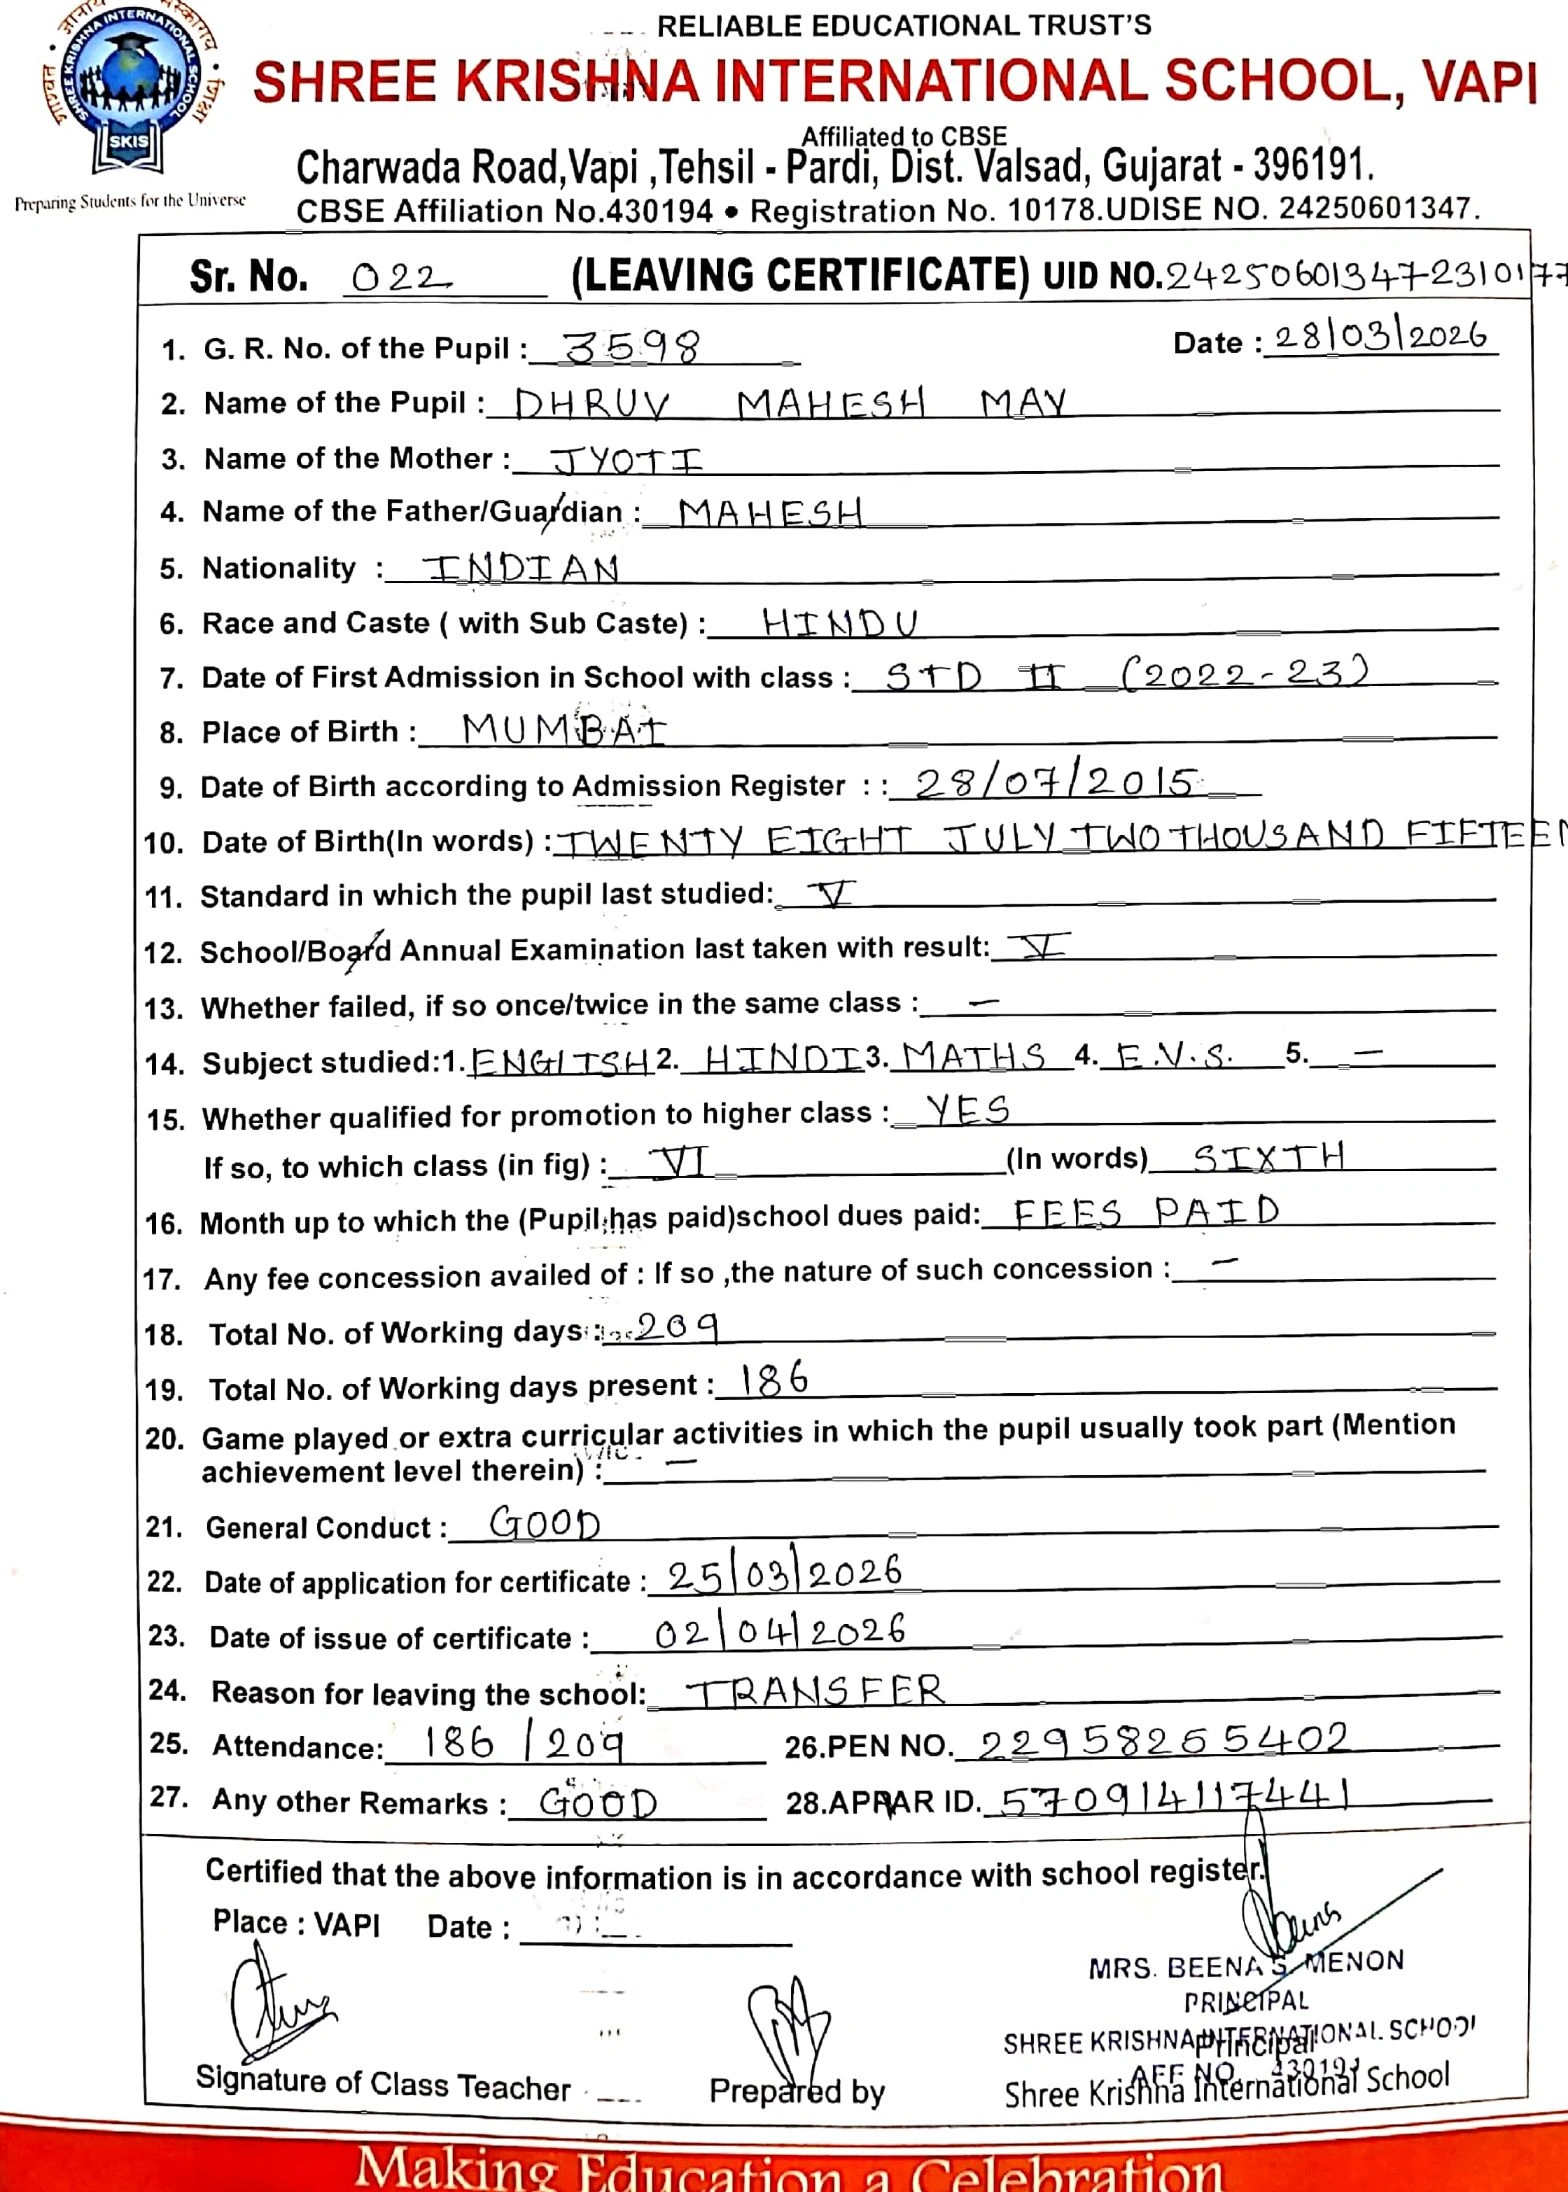 RELIABLE EDUCATIONAL TRUST'S
SHREE KRISHNA INTERNATIONAL SCHOOL, VAPI
Affiliated to CBSE
Charwada Road,Vapi ,Tehsil - Pardi, Dist. Valsad, Gujarat - 396191.
CBSE Affiliation No.430194 • Registration No. 10178.UDISE NO. 24250601347.
SHREE KRISHNA INTERNATIONAL SCHOOL
SKIS
Preparing Students for the Universe
Sr. No. 022 (LEAVING CERTIFICATE) UID NO.242506013472310177
1. G. R. No. of the Pupil : 3598 Date : 28/03/2026
2. Name of the Pupil : DHRUV MAHESH MAY
3. Name of the Mother : JYOTI
4. Name of the Father/Guardian : MAHESH
5. Nationality : INDIAN
6. Race and Caste ( with Sub Caste) : HINDU
7. Date of First Admission in School with class : STD II (2022-23)
8. Place of Birth : MUMBAI
9. Date of Birth according to Admission Register : : 28/07/2015
10. Date of Birth(In words) : TWENTY EIGHT JULY TWO THOUSAND FIFTEEN
11. Standard in which the pupil last studied: V
12. School/Board Annual Examination last taken with result: V
13. Whether failed, if so once/twice in the same class : —
14. Subject studied:1. ENGLISH 2. HINDI 3. MATHS 4. E.V.S. 5. —
15. Whether qualified for promotion to higher class : YES
If so, to which class (in fig) : VI (In words) SIXTH
16. Month up to which the (Pupil has paid)school dues paid: FEES PAID
17. Any fee concession availed of : If so ,the nature of such concession : —
18. Total No. of Working days : 209
19. Total No. of Working days present : 186
20. Game played or extra curricular activities in which the pupil usually took part (Mention
achievement level therein) : —
21. General Conduct : GOOD
22. Date of application for certificate : 25/03/2026
23. Date of issue of certificate : 02/04/2026
24. Reason for leaving the school: TRANSFER
25. Attendance: 186 / 209 26.PEN NO. 22958265402
27. Any other Remarks : GOOD 28.APAAR ID. 570914117441
Certified that the above information is in accordance with school register.
Place : VAPI Date :
MRS. BEENA S. MENON
PRINCIPAL
SHREE KRISHNA INTERNATIONAL SCHOOL
Principal
AFF NO. 430194
Shree Krishna International School
Signature of Class Teacher Prepared by
Making Education a Celebration